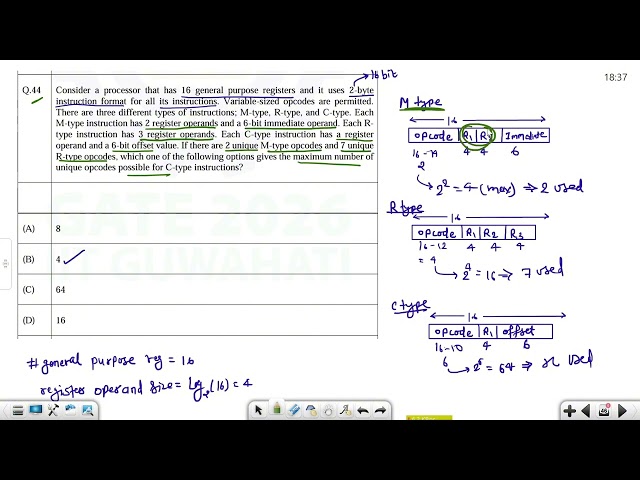 16 bit
18:37
Q.44 Consider a processor that has 16 general purpose registers and it uses 2-byte
instruction format for all its instructions. Variable-sized opcodes are permitted.
There are three different types of instructions; M-type, R-type, and C-type. Each
M-type instruction has 2 register operands and a 6-bit immediate operand. Each R-
type instruction has 3 register operands. Each C-type instruction has a register
operand and a 6-bit offset value. If there are 2 unique M-type opcodes and 7 unique
R-type opcodes, which one of the following options gives the maximum number of
unique opcodes possible for C-type instructions?
GATE 2026
IIT GUWAHATI
(A) 8
(B) 4
(C) 64
(D) 16
# general purpose reg = 16
register operand size = log2(16) = 4
M type
16
opcode R1 R2 Immediate
16-14 4 4 6
2
2^2 = 4 (max) ⇒ 2 used
R type
16
opcode R1 R2 R3
16-12 4 4 4
= 4
2^4 = 16 ⇒ 7 used
C type
16
opcode R1 offset
16-10 4 6
6
2^6 = 64 ⇒ x used